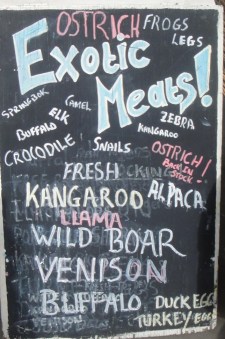 OSTRICH FROGS
LEGS
Exotic
Meats!
SPRINGBOK
CAMEL
ELK
ZEBRA
BUFFALO
KANGAROO
CROCODILE
SNAILS
OSTRICH!
BACK IN
STOCK
FRESH
KANGAROO
ALPACA
LLAMA
WILD BOAR
VENISON
BUFFALO
DUCK EGG
TURKEY EGG